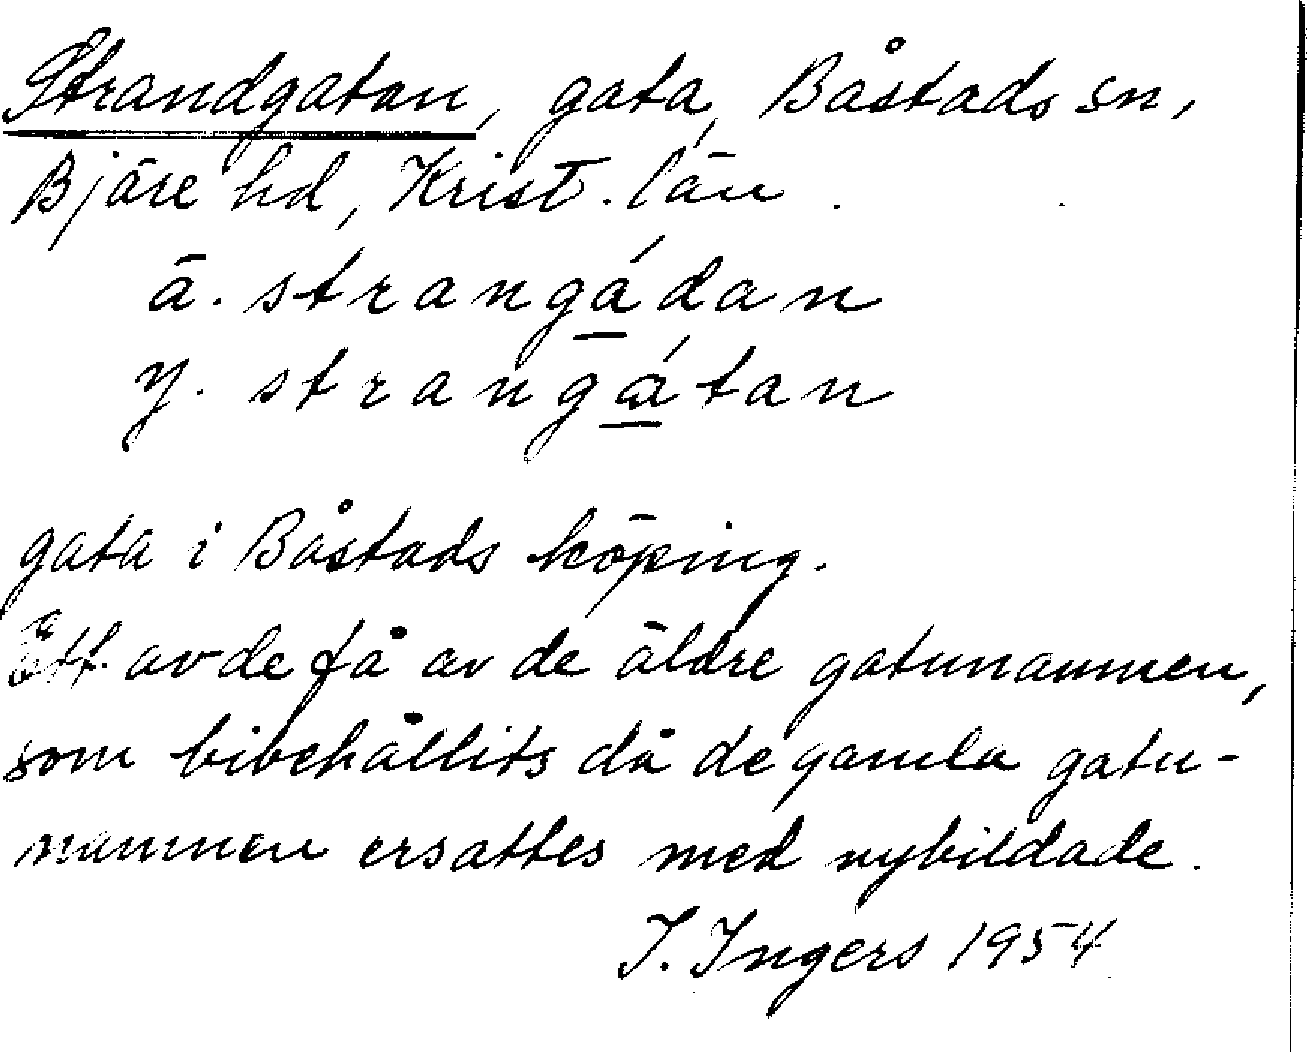 Strandgatan, gata, Båstads sn,
Bjäre hd, Krist. län.
ä. strangádan
y. strangátan
gata i Båstads köping.
Ett av de få av de äldre gatunamnen,
som bibehållits då de gamla gatu-
namnen ersattes med nybildade.
I. Ingers 1954